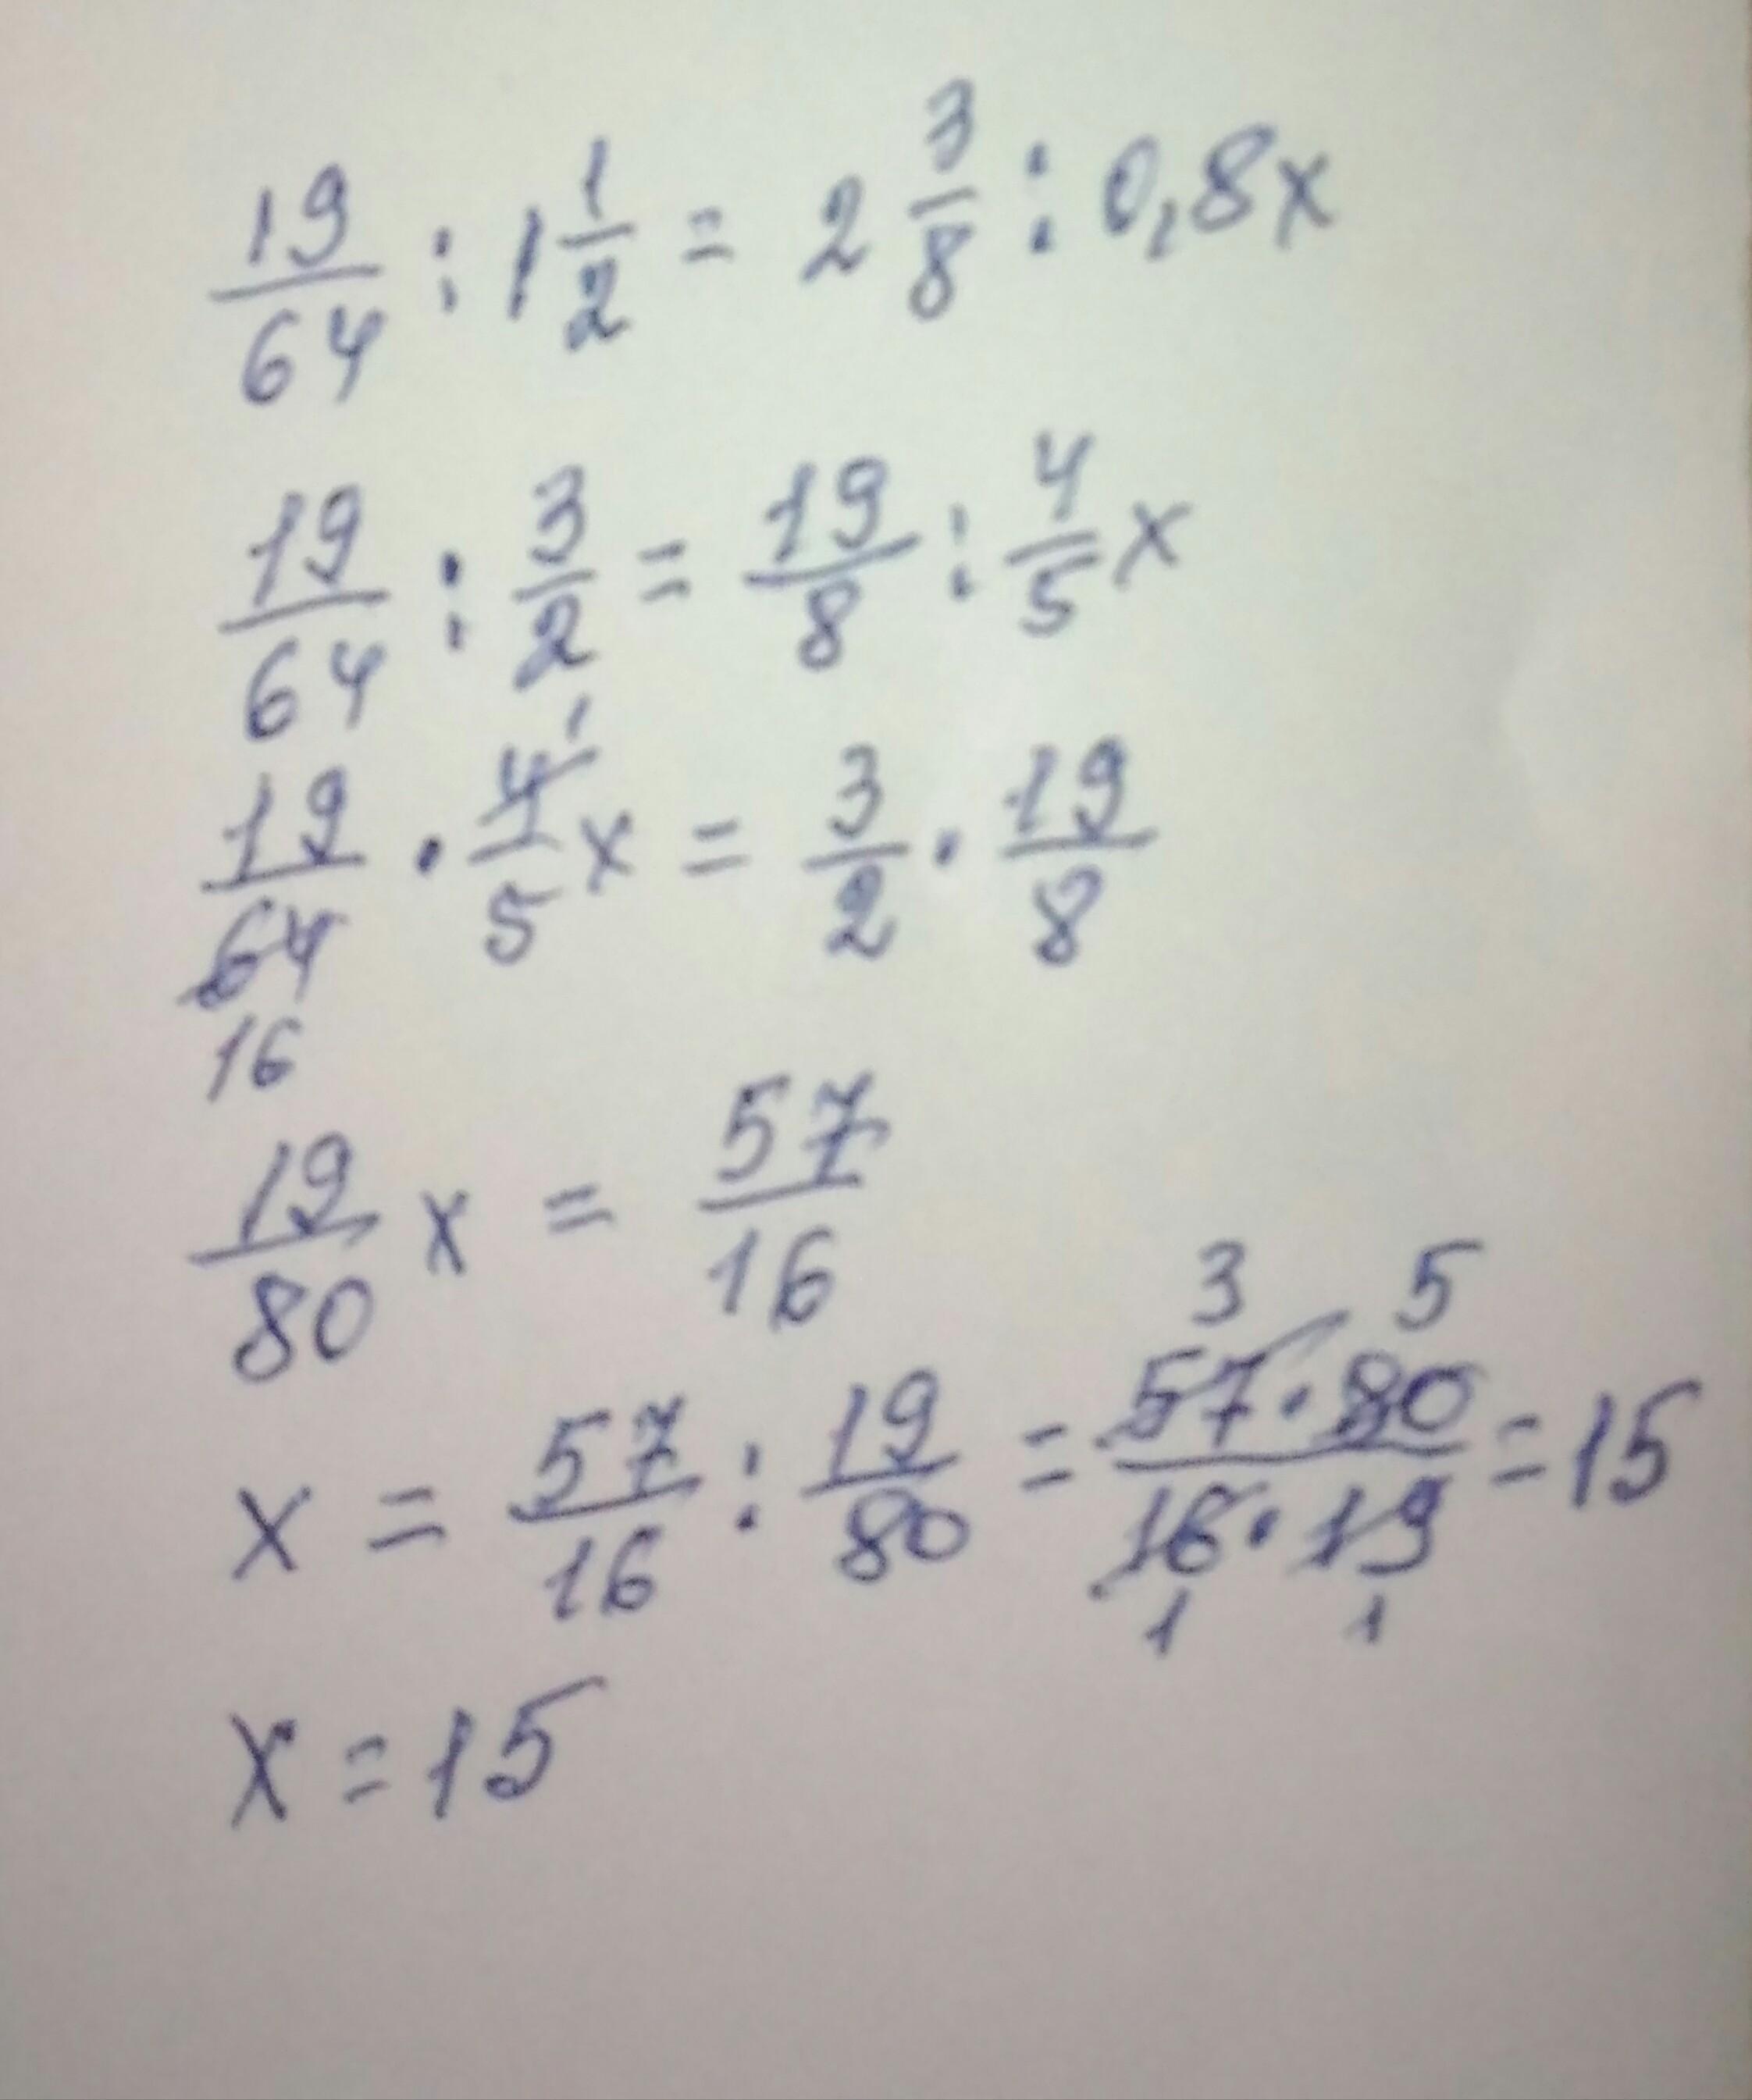 19/64 : 1 1/2 = 2 3/8 : 0,8x
19/64 : 3/2 = 19/8 : 4/5 x
19/64 16 · 4/5 1 x = 3/2 · 19/8
19/80 x = 57/16
3 5
x = 57/16 : 19/80 = 57·80/16·19 = 15
1 1
x = 15